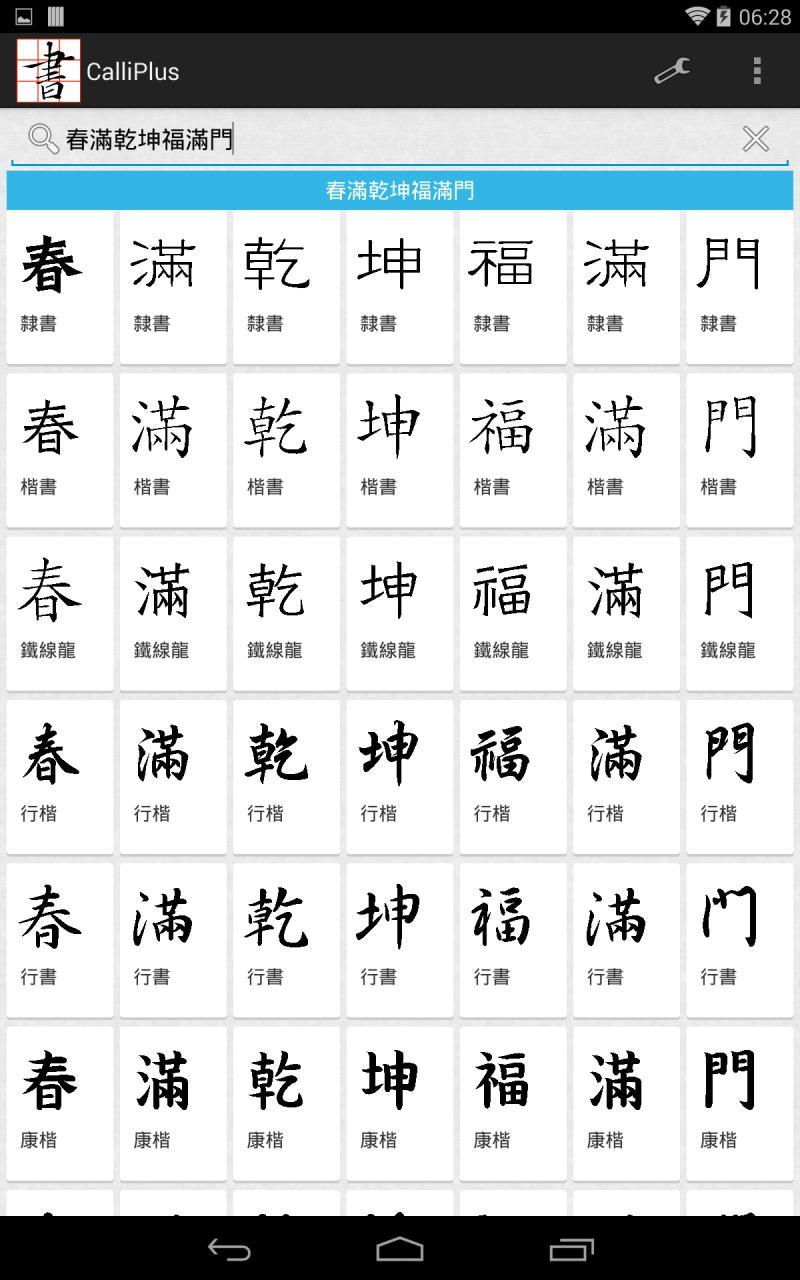 06:28
書 CalliPlus
春滿乾坤福滿門
春滿乾坤福滿門
春 滿 乾 坤 福 滿 門
隸書 隸書 隸書 隸書 隸書 隸書 隸書
春 滿 乾 坤 福 滿 門
楷書 楷書 楷書 楷書 楷書 楷書 楷書
春 滿 乾 坤 福 滿 門
鐵線龍 鐵線龍 鐵線龍 鐵線龍 鐵線龍 鐵線龍 鐵線龍
春 滿 乾 坤 福 滿 門
行楷 行楷 行楷 行楷 行楷 行楷 行楷
春 滿 乾 坤 福 滿 門
行書 行書 行書 行書 行書 行書 行書
春 滿 乾 坤 福 滿 門
康楷 康楷 康楷 康楷 康楷 康楷 康楷